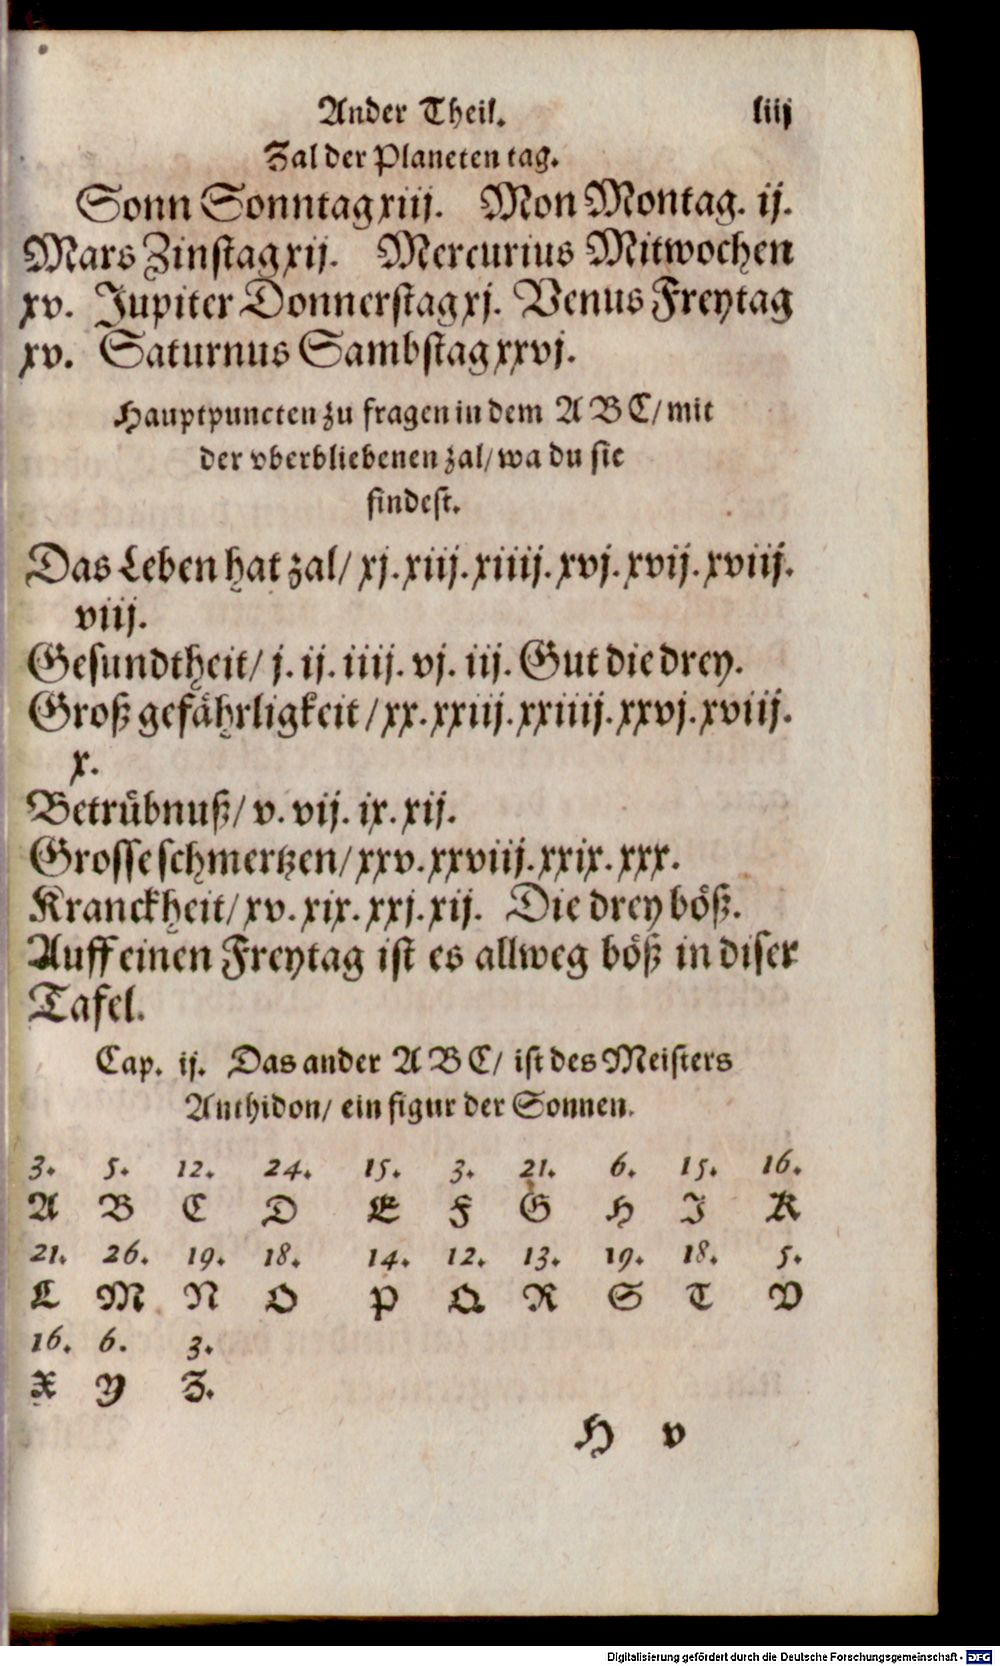 Ander Theil. liij
Zal der Planeten tag.
Sonn Sonntag xiij. Mon Montag. ij.
Mars Zinstag xij. Mercurius Mitwochen
xv. Jupiter Donnerstag xj. Venus Freytag
xv. Saturnus Sambstag xxvj.
Hauptpuncten zu fragen in dem A B C/ mit
der vberbliebenen zal/ wa du sie
findest.
Das Leben hat zal/ xj. xiij. xiiij. xvj. xvij. xviij.
viij.
Gesundtheit/ j. ij. iiij. vj. iij. Gut die drey.
Groß gefährligkeit/ xx. xxiij. xxiiij. xxvj. xviij.
x.
Betrübnuß/ v. vij. ix. xij.
Grosse schmertzen/ xxv. xxviij. xxix. xxx.
Kranckheit/ xv. xix. xxj. xij. Die drey böß.
Auff einen Freytag ist es allweg böß in diser
Tafel.
Cap. ij. Das ander A B C/ ist des Meisters
Anthidon/ ein figur der Sonnen.
3. 5. 12. 24. 15. 3. 21. 6. 15. 16.
A B C D E F G H I K
21. 26. 19. 18. 14. 12. 13. 19. 18. 5.
L M N O P Q R S T V
16. 6. 3.
X Y Z.
H v
Digitalisierung gefördert durch die Deutsche Forschungsgemeinschaft - DFG